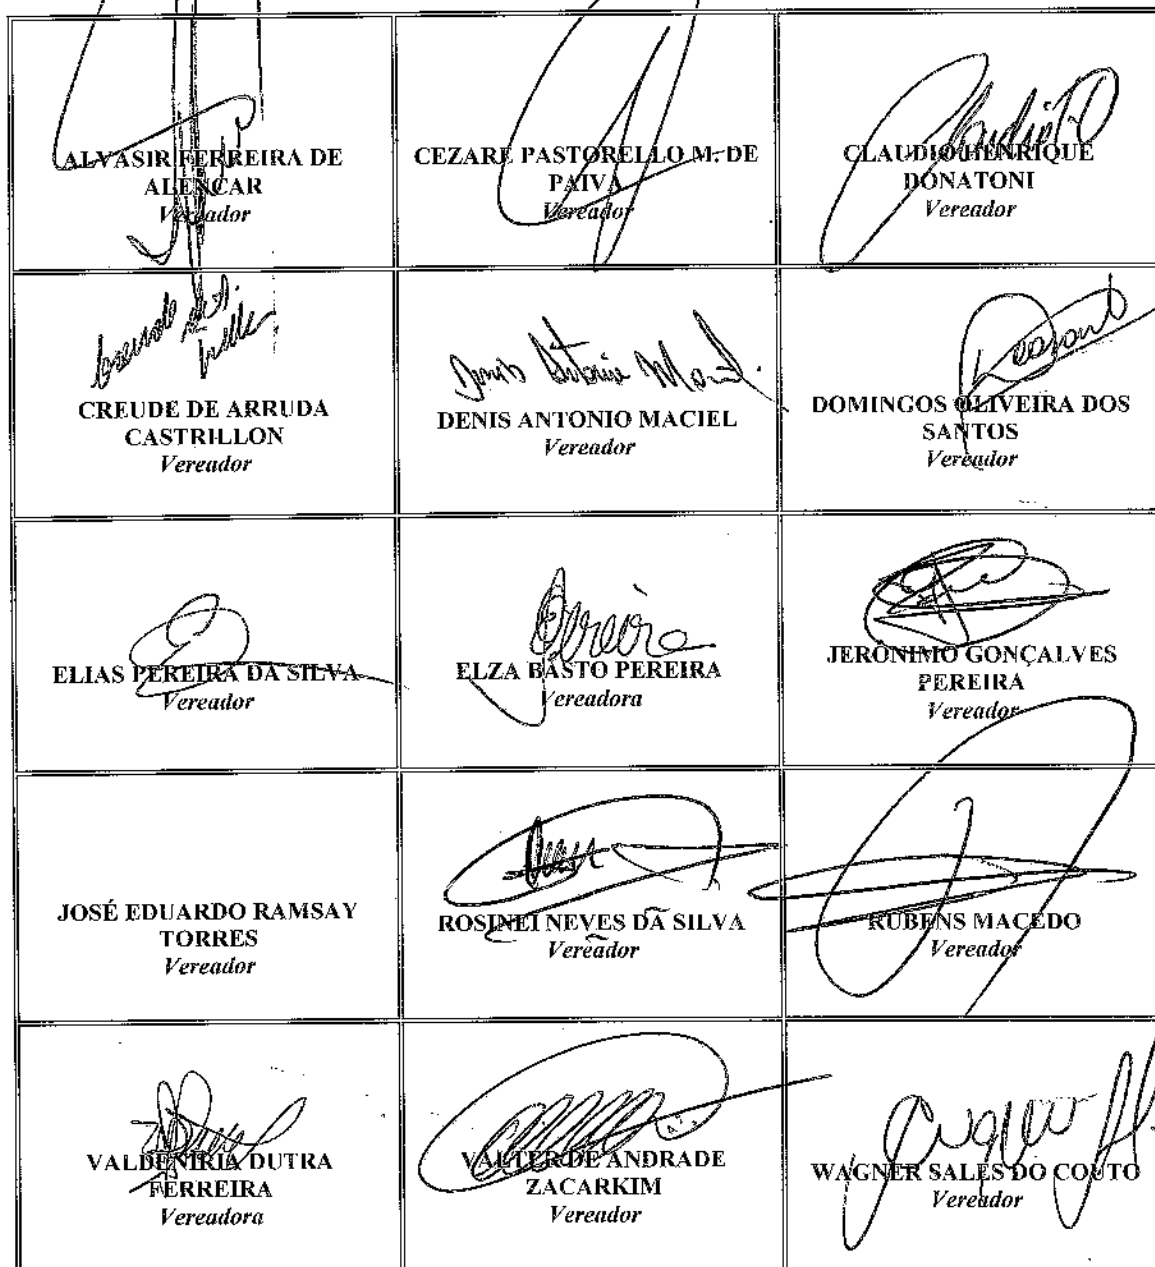 ALVASIR FERREIRA DE
ALENCAR
Vereador
CEZARE PASTORELLO M. DE
PAIVA
Vereador
CLAUDIO HENRIQUE
DONATONI
Vereador
CREUDE DE ARRUDA
CASTRILLON
Vereador
Denis Antonio Maciel
DENIS ANTONIO MACIEL
Vereador
DOMINGOS OLIVEIRA DOS
SANTOS
Vereador
ELIAS PEREIRA DA SILVA
Vereador
Pereira
ELZA BASTO PEREIRA
Vereadora
JERÔNIMO GONÇALVES
PEREIRA
Vereador
JOSÉ EDUARDO RAMSAY
TORRES
Vereador
ROSINEI NEVES DA SILVA
Vereador
RUBENS MACEDO
Vereador
VALDENIRIA DUTRA
FERREIRA
Vereadora
VALTER DE ANDRADE
ZACARKIM
Vereador
WAGNER SALES DO COUTO
Vereador